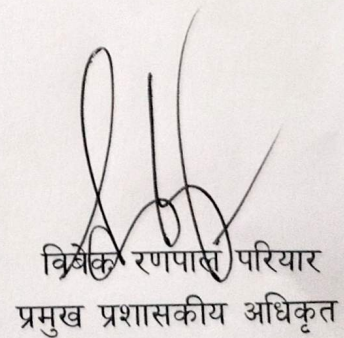 विबेक रणपाल परियार
प्रमुख प्रशासकीय अधिकृत